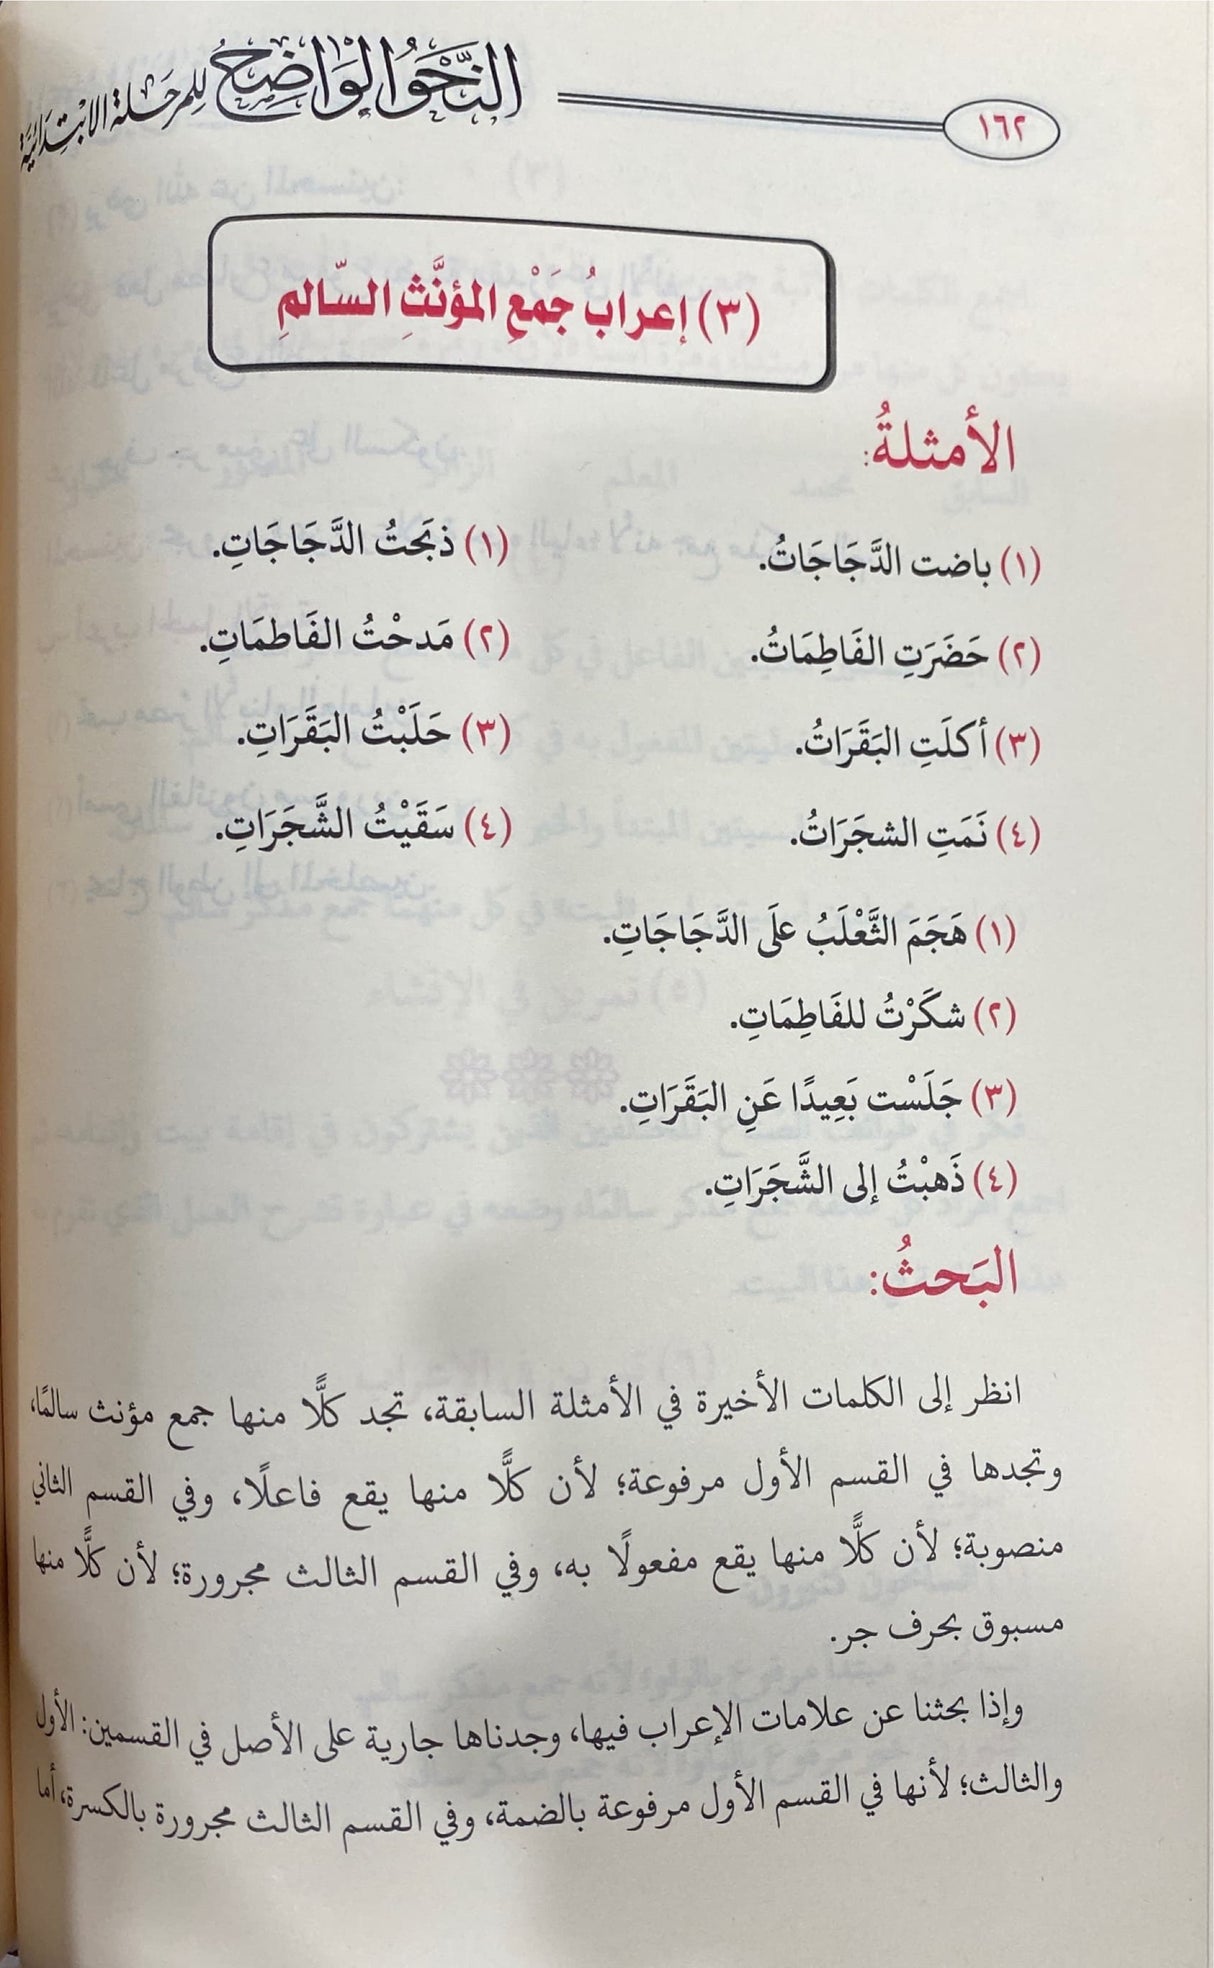 النَّحْوُ الْوَاضِحُ لِلمرحَلة الابْتِدَائيَّة
١٦٢
(٣) إعرابُ جَمْعِ المؤنَّثِ السّالمِ
الأمثلةُ:
(١) باضت الدَّجَاجَاتُ.
(١) ذبَحتُ الدَّجَاجَاتِ.
(٢) حَضَرَتِ الفَاطِمَاتُ.
(٢) مَدحْتُ الفَاطمَاتِ.
(٣) أكلَتِ البَقَرَاتُ.
(٣) حَلَبْتُ البَقَرَاتِ.
(٤) نَمَتِ الشجَرَاتُ.
(٤) سَقَيْتُ الشَّجَرَاتِ.
(١) هَجَمَ الثَّعْلَبُ علَى الدَّجَاجَاتِ.
(٢) شكَرْتُ للفَاطِمَاتِ.
(٣) جَلَسْت بَعِيدًا عَنِ البَقَرَاتِ.
(٤) ذَهبْتُ إلى الشَّجَرَاتِ.
البَحثُ:
انظر إلى الكلمات الأخيرة في الأمثلة السابقة، تجد كلًّا منها جمع مؤنث سالمًا،
وتجدها في القسم الأول مرفوعة؛ لأن كلًّا منها يقع فاعلًا، وفي القسم الثاني
منصوبة؛ لأن كلًّا منها يقع مفعولًا به، وفي القسم الثالث مجرورة؛ لأن كلًّا منها
مسبوق بحرف جر.
وإذا بحثنا عن علامات الإعراب فيها، وجدناها جارية على الأصل في القسمين: الأول
والثالث؛ لأنها في القسم الأول مرفوعة بالضمة، وفي القسم الثالث مجرورة بالكسرة، أما